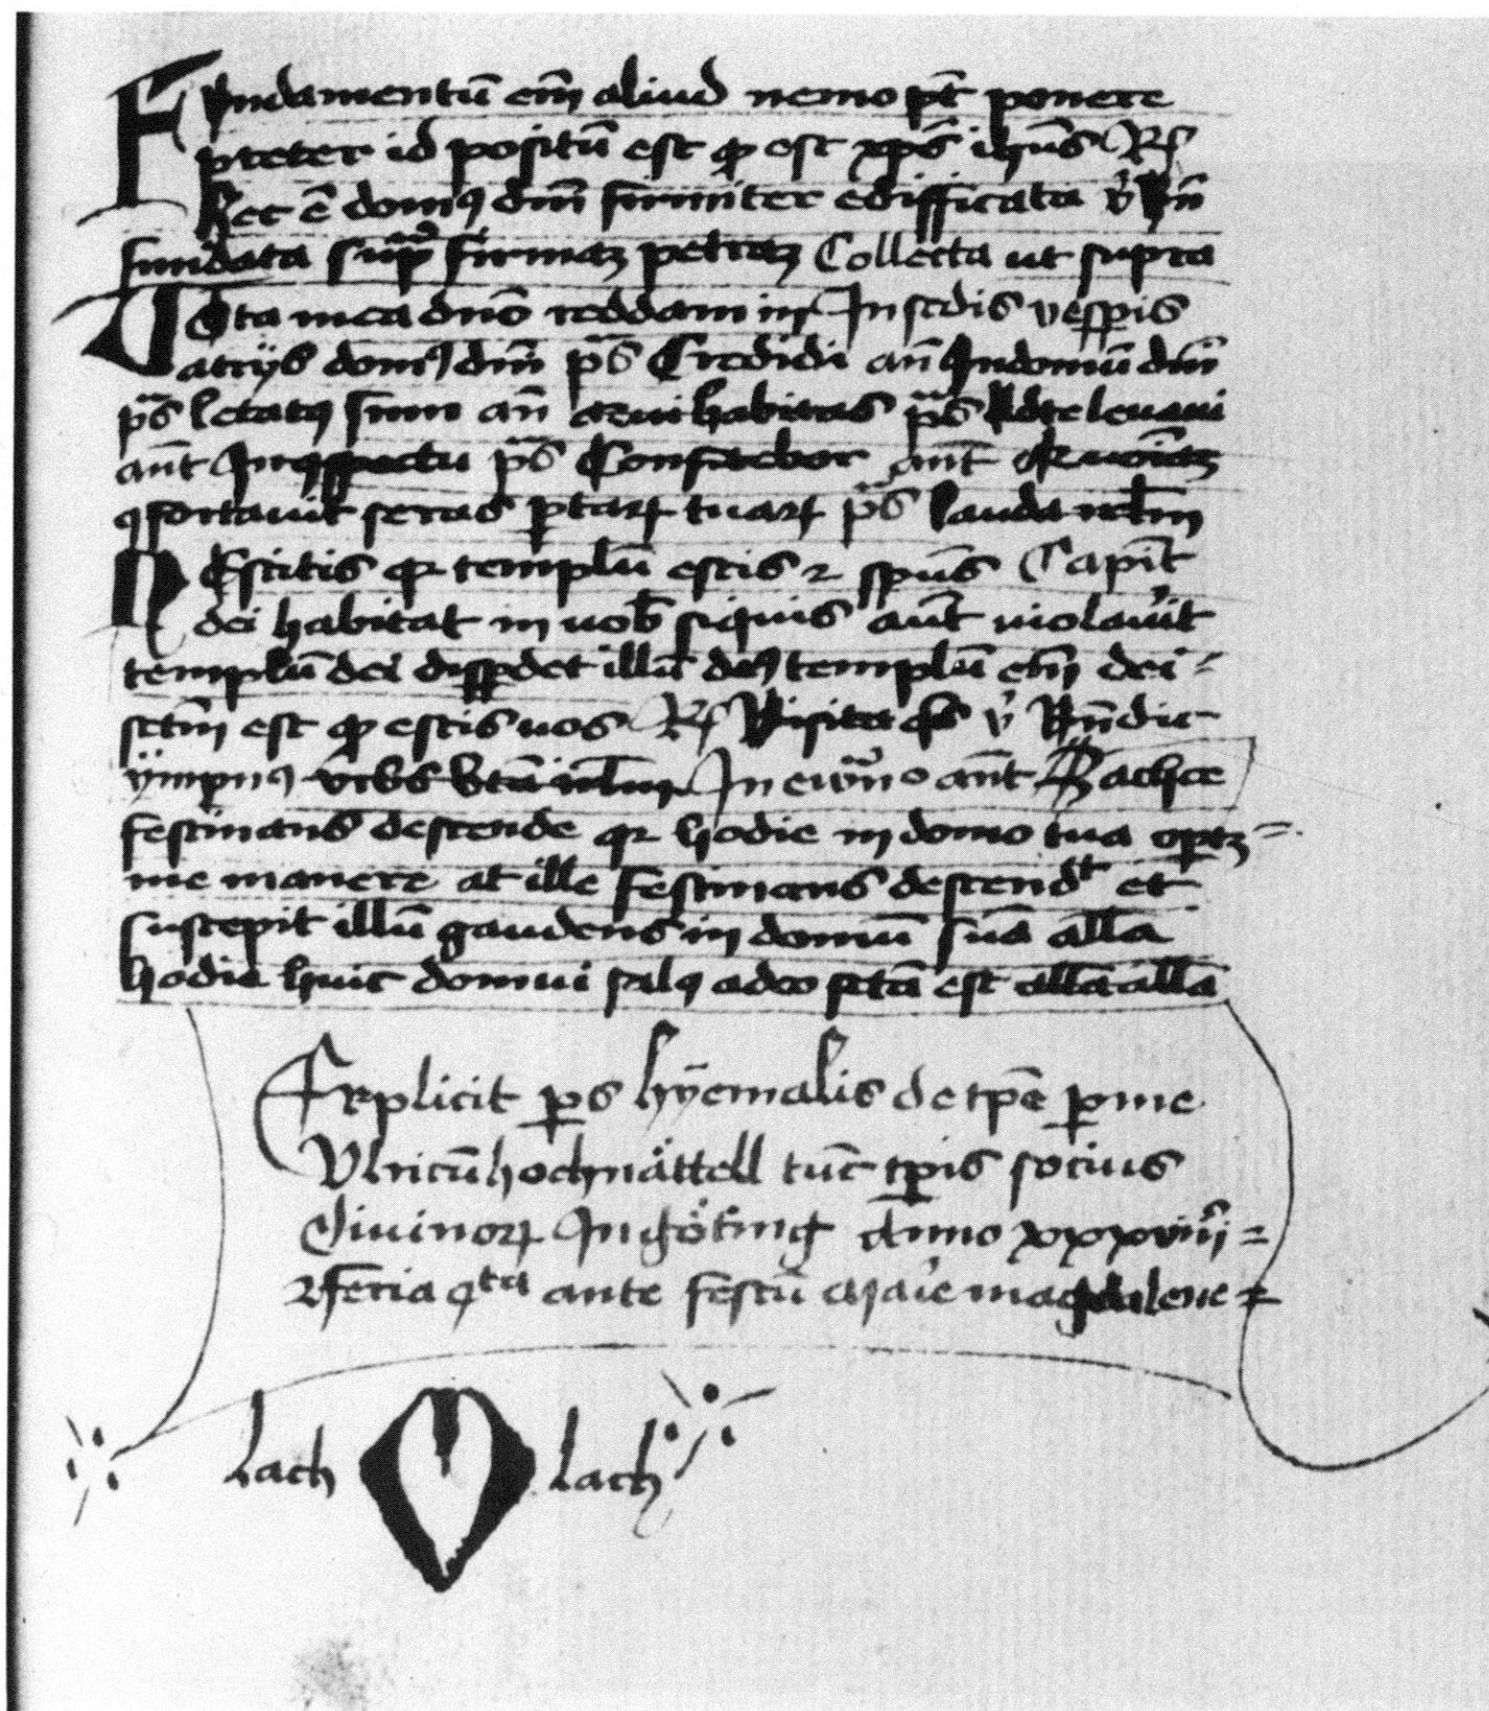 Fundamentū em̄ aliud nemo pt̄ ponere
preter id positū est qd est xp̄s ih̄us R
hec ē domꝰ dn̄i firmiter edifficata v̓ bn̄
fundata sup̄ firmaꝫ petraꝫ Collecta ut supra
Uota mea dn̄o reddam in In scdis vesp̄is
atrijs domꝰ dn̄i p̄s Credidi an̄ In domū dn̄i
p̄s letatꝰ sum an̄ qui habitas p̄s Ad te leuaui
ant̄ In ꝯspectu p̄s Confitebor ant̄
ꝯfortauit seras portaꝝ tuaꝝ p̄s lauda
NEscitis qꝛ templū estis ⁊ sp̄us Capit̄
dei habitat in uob̄ siquis aut̄ uiolau̓it
templū dei disꝑdet illū deꝰ templū em̄ dei
sct̄m est qd estis uos R Visitet v̓ Bn̄dic
ÿmpnꝰ vrbs bt̄ā In ewn̄o ant̄ Zachee
festinans descende qꝛ hodie in domo tua oportꝫ
me manere at ille festinans descendt et
suscepit illū gaudens in domū suā all̄a
hodie huic domui salꝰ a deo fctā est all̄a all̄a
Explicit ꝑs hyemalis de tp̄e ꝑ me
Vlricū hochnättell tūc tp̄is socius
diuinoꝝ In göffing Anno xxxviiij
⁊ feria qta ante festū marie magdalene
lach lach